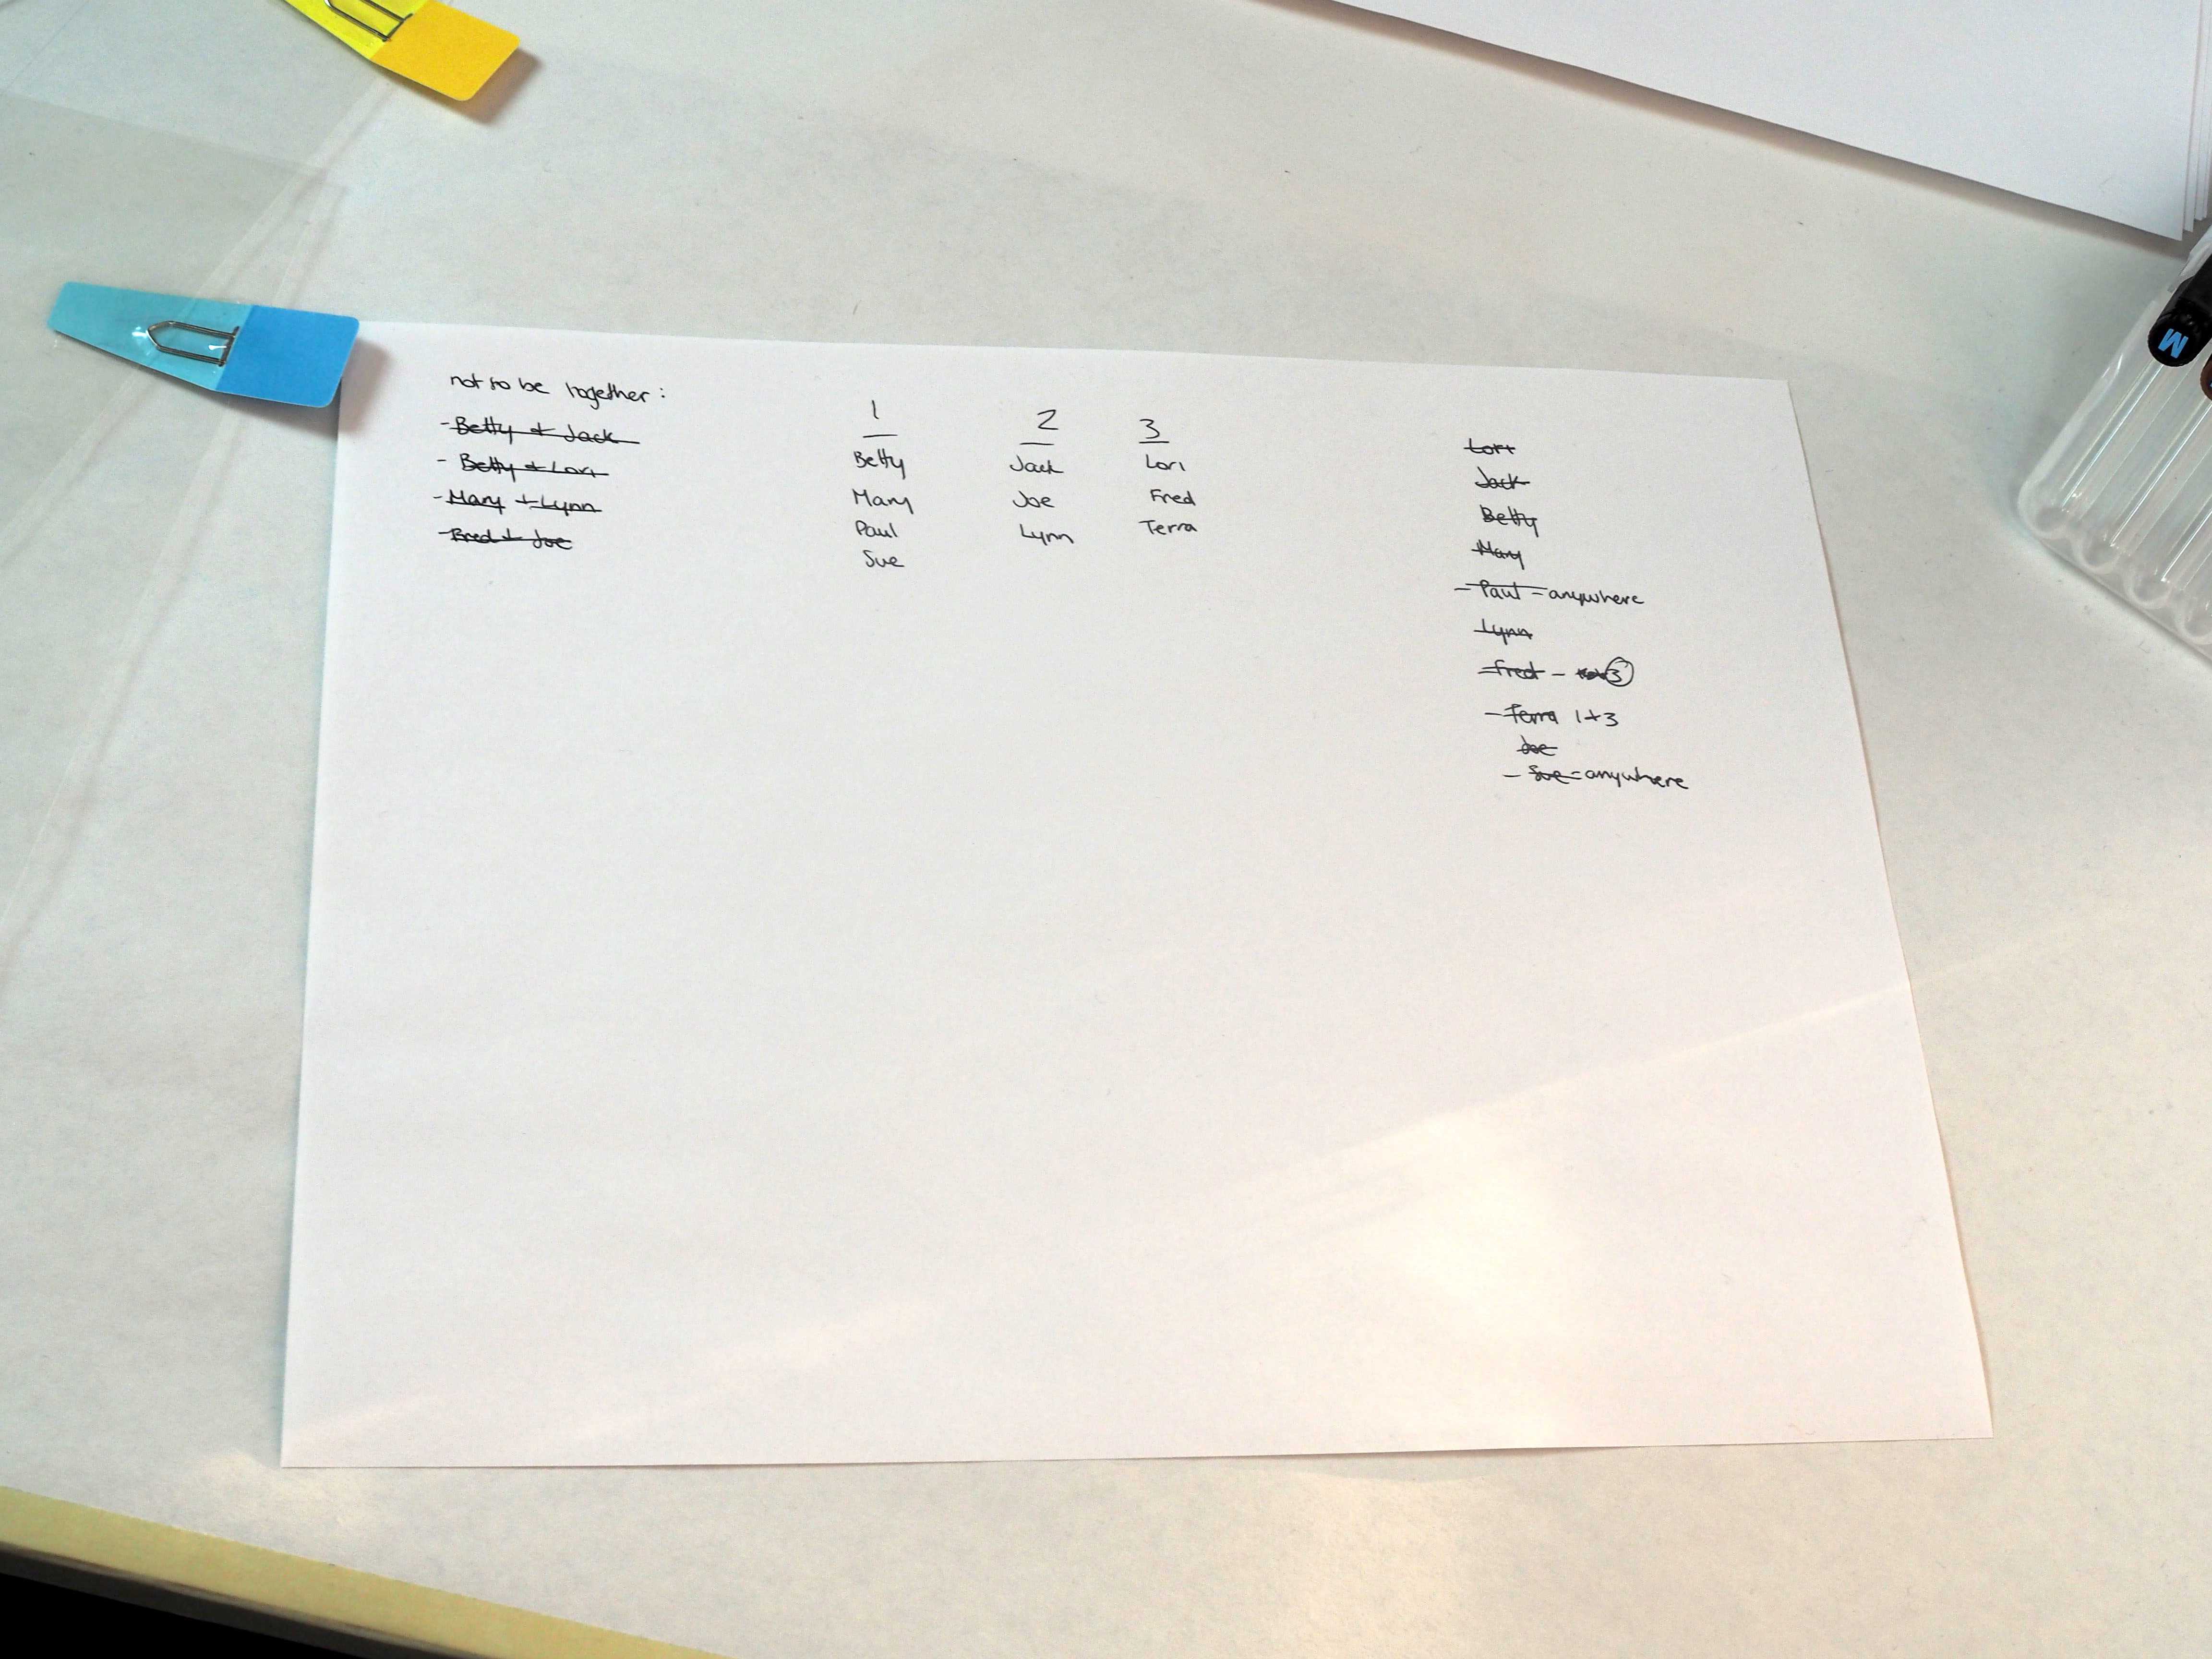 not to be together:
- Betty + Jack
- Betty + Lori
- Mary + Lynn
- Fred + Joe
1 2 3
Betty Jack Lori
Mary Joe Fred
Paul Lynn Terra
Sue
Lori
Jack
Betty
Mary
- Paul = anywhere
Lynn
Fred - 3
- Terra 1+3
Joe
- Sue = anywhere
M